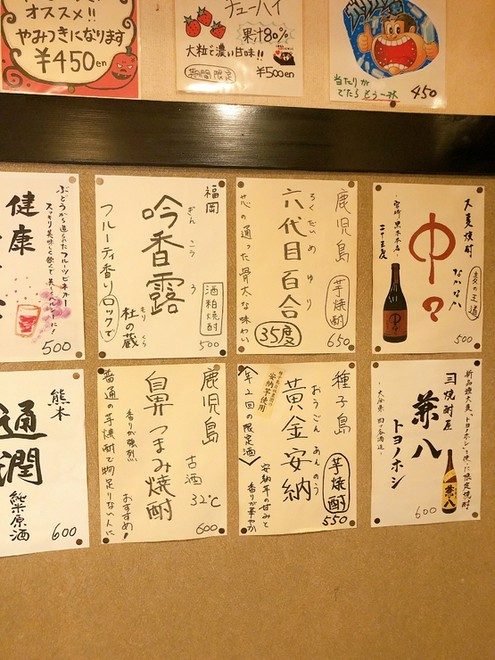 オススメ!!
やみつきになります
¥450en
チューハイ
果汁80%
大粒で濃い甘味!!
期間限定
¥500en
当たりが
でたらもう一杯
450
大麦焼酎
中々
なかなか
麦の王道
宮崎 黒木本店
二十五度
500
鹿児島
芋焼酎
ろくだいめ ゆり
六代目百合
35度
芯の通った骨太な味わい
650
福岡
ぎんこうろ
吟香露
酒粕焼酎
もり くら
杜の蔵
フルーティ香りロックで
500
ぶどうから造られたフルーツビネガー
健康
500
新品種大麦、トヨノホシを使った限定焼酎
焼酎屋
兼八
トヨノホシ
大分県 四ッ谷酒造
600
種子島
安納芋使用
おうごんあんのう
黄金安納
芋焼酎
550
年2回の限定酒
安納芋の甘みと
香りが華やか
鹿児島
古酒
32℃
鼻つまみ焼酎
600
香りが強烈
普通の芋焼酎で物足りない人に
おすすめ!
熊本
通潤
純米原酒
600